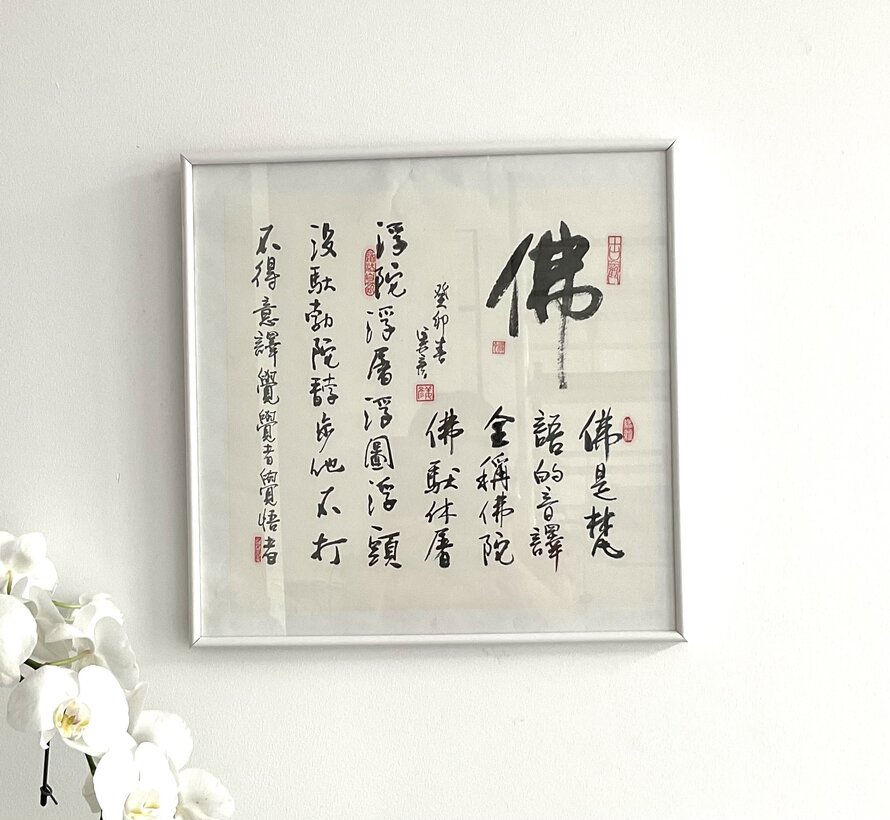 佛
佛是梵
語的音譯
全稱佛陀
佛馱休屠
浮陀浮屠浮圖浮頭
沒馱勃陀馞步他不打
不得意譯覺覺者覺悟者
癸卯春